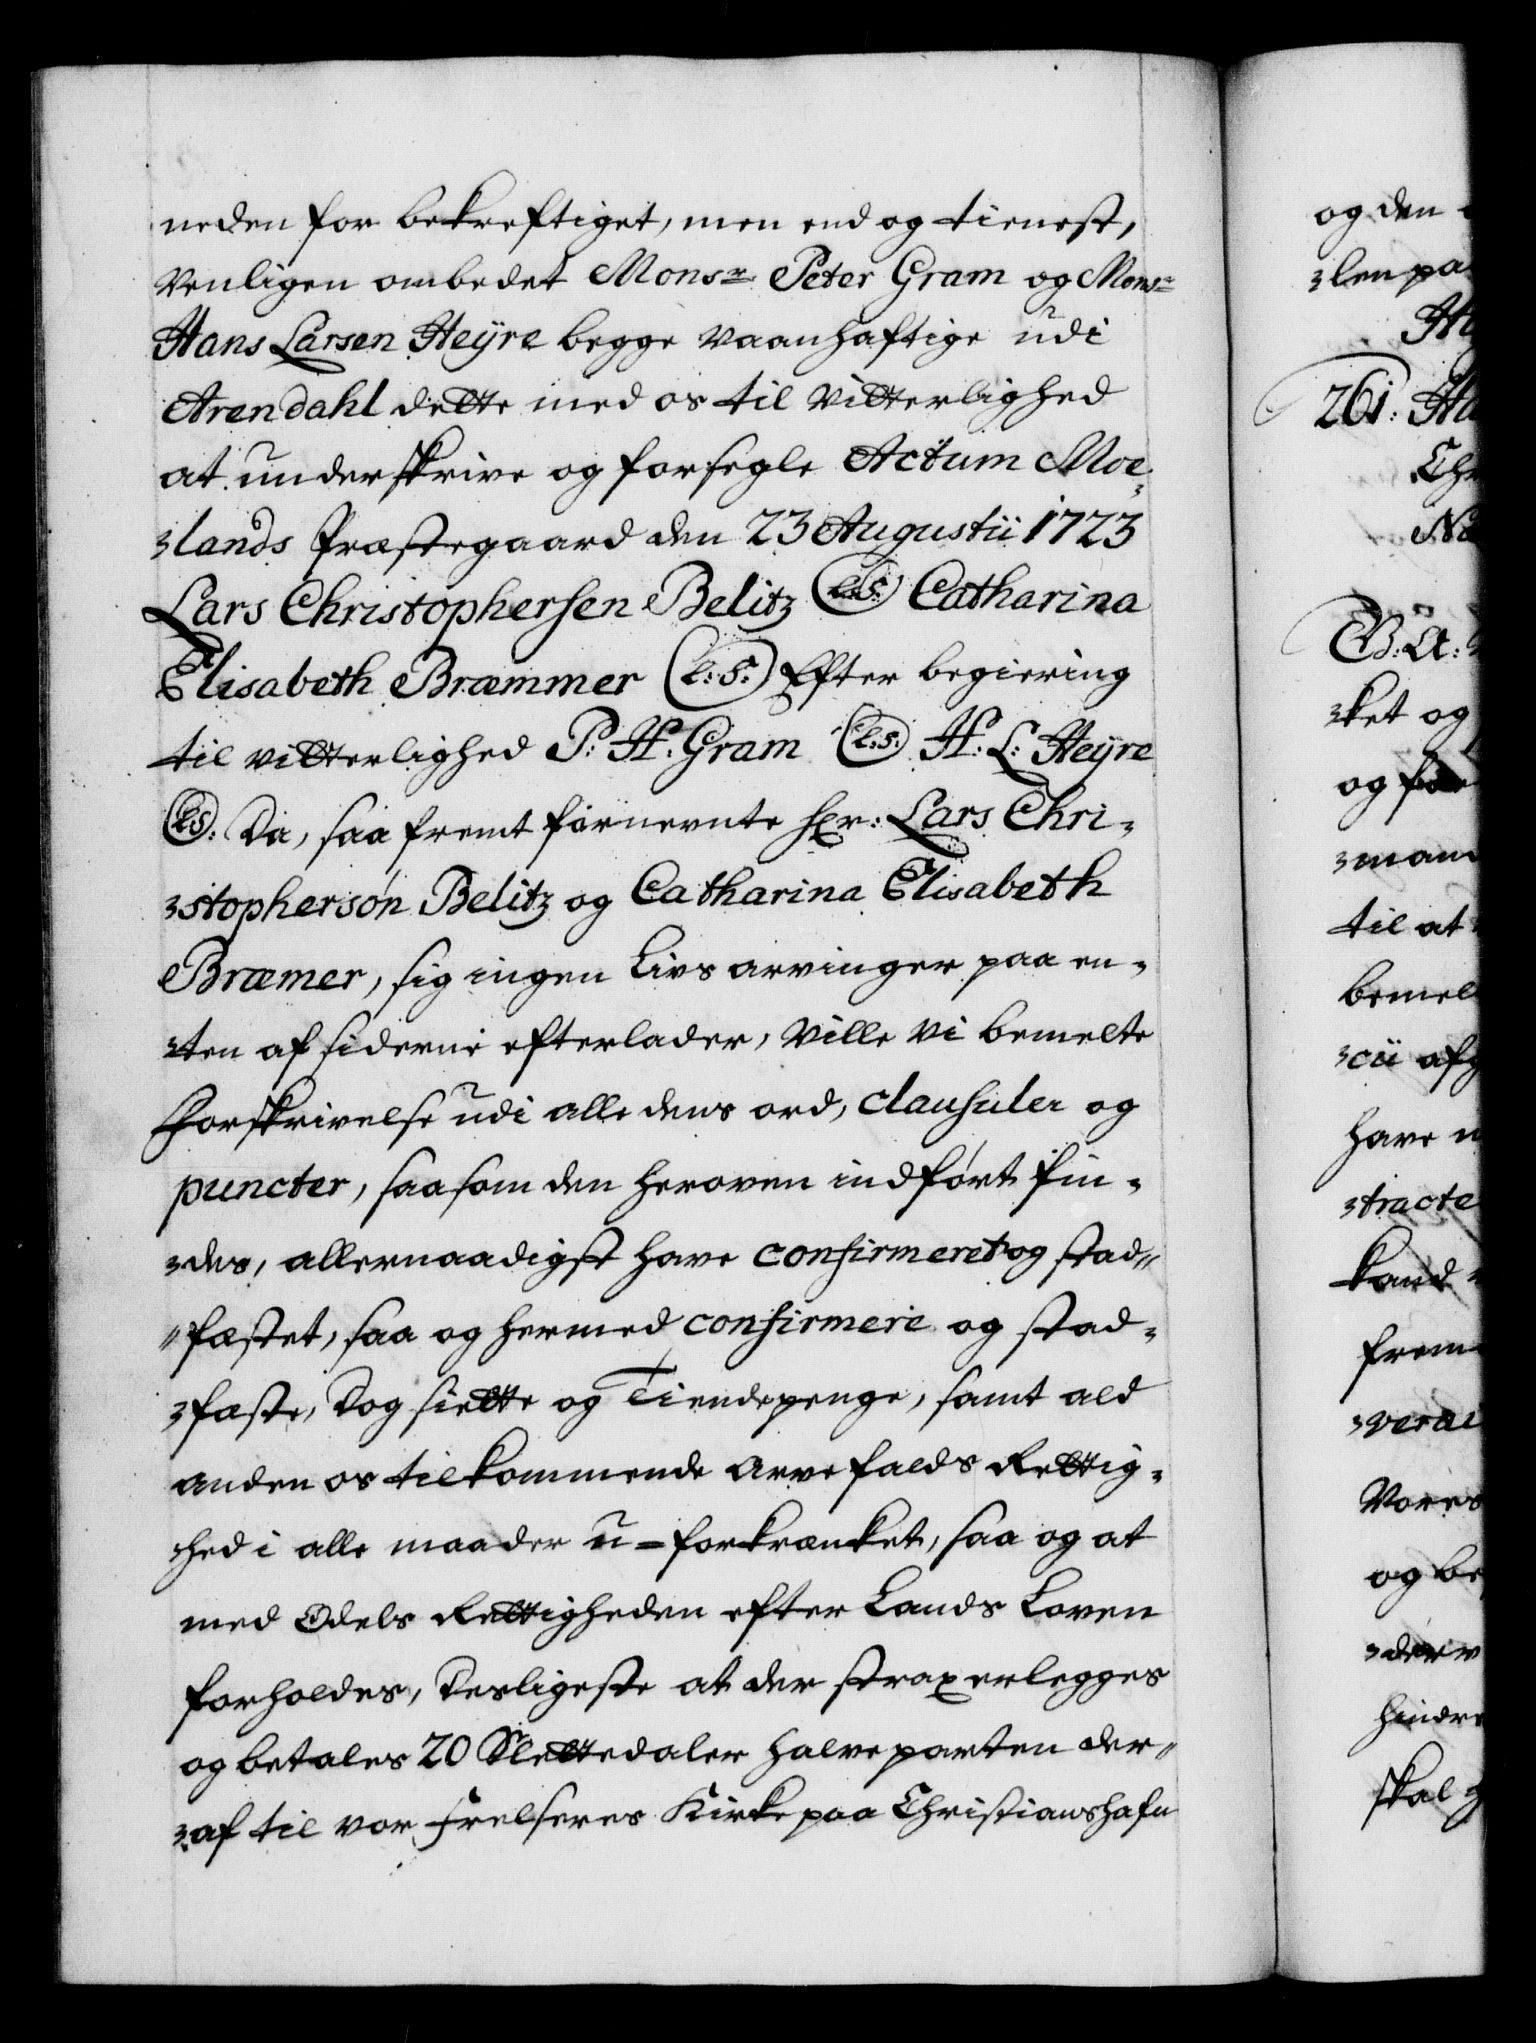 neden for bekreftiget, men end og tienest,
venligen ombedet Monsr Peter Gram og Monsr
Hans Larsen Heÿre begge vaanhaftige udi
Arendahl dette med os til Vitterlighed
at underskrive og forsegle Actum Moe-
lands Præstegaard den 23 Augustii 1723
Lars Christophersen Belitz (L.S.) Catharina
Elisabeth Bræmmer (L:S:) Efter begiering
til vitterlighed P: H: Gram (L:S:) H: L: Heÿre
(LS): Da, saa fremt førnevnte Hr: Lars Chri-
stophersøn Belitz og Catharina Elisabeth
Bræmer, sig ingen Livs arvinger paa en-
ten af siderne efterlader, Ville Vi bemelte
Forskrivelse udi alle dens ord, clausuler og
puncter, saasom den heroven indført fin-
des, allernaadigst have confirmeret og stad-
fæstet, saa og hermed confirmere og stad-
fæste, Dog siette og Tiendepenge, samt ald
anden os tilkommende Arvefalds Rettig-
hed i alle maader u-forkrænket, saa og at
med Odels Rettigheden efter Lands Loven
forholdes, Desligeste at der strax erlegges
og betales 20 Slettedaler halveparten der-
af til vor Frelseres Kirke paa Christianshafn
og den
len pa
261: Ha
Chr
B: A:
ket og
og for
man
til at
bemel
cii afg
have
tracte
kand
frem
Vores
og be
der
hindre
skal